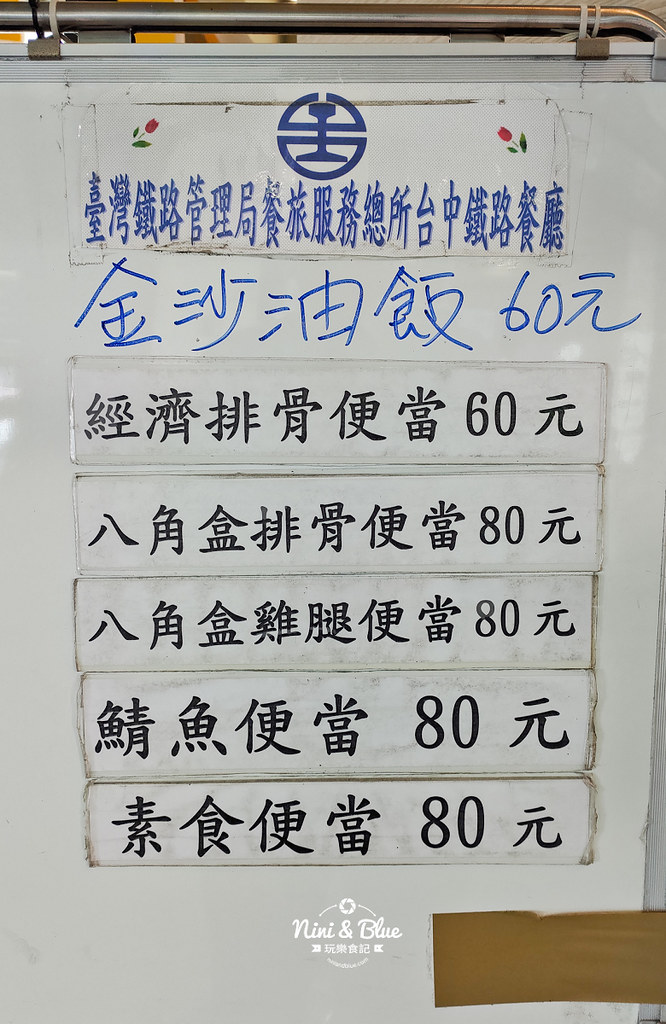 臺灣鐵路管理局餐旅服務總所台中鐵路餐廳
金沙油飯 60元
經濟排骨便當 60 元
八角盒排骨便當 80 元
八角盒雞腿便當 80 元
鯖魚便當 80 元
素食便當 80 元
Nini & Blue
玩樂食記
niniandblue.com